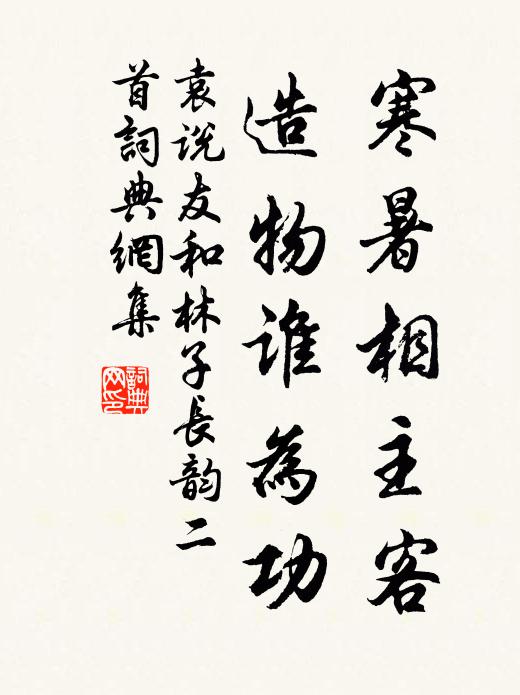 寒暑相主客
造物誰為功
袁説友和林子長韵二
首詞典網集
詞典
网印